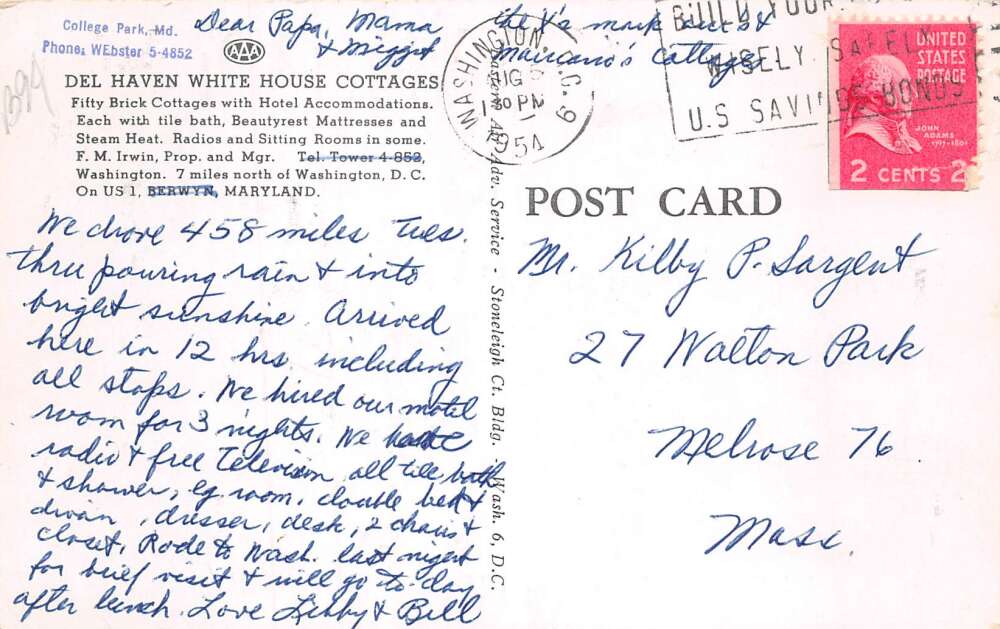 College Park, Md.
Phone: WEbster 5-4852
Dear Papa, Mama
& Migget
the X's mark our &
Marcano's Cottages.
B94
AAA
DEL HAVEN WHITE HOUSE COTTAGES
Fifty Brick Cottages with Hotel Accommodations.
Each with tile bath, Beautyrest Mattresses and
Steam Heat. Radios and Sitting Rooms in some.
F. M. Irwin, Prop. and Mgr. Tel. Tower 4-852,
Washington. 7 miles north of Washington, D. C.
On US 1, BERWYN, MARYLAND.
We drove 458 miles Tues.
thru pouring rain & into
bright sunshine. Arrived
here in 12 hrs. including
all stops. We hired our motel
room for 3 nights. We have
radio & free Television all tile bath
& shower, lg. room, double bed &
divan, dresser, desk, 2 chairs &
closet. Rode to Wash. last night
for brief visit & will go to-day
after lunch. Love Libby & Bill
Adv. Service - Stoneleigh Ct. Bldg. - Wash. 6, D.C.
WASHINGTON, D.C. 6
AUG 5
1 30 PM
1954
BUILD YOUR
WISELY SAFELY
U.S. SAVINGS BONDS
UNITED
STATES
POSTAGE
JOHN
ADAMS
1797-1801
2 CENTS 2
POST CARD
Mr. Kilby P. Sargent
27 Walton Park
Melrose 76
Mass.